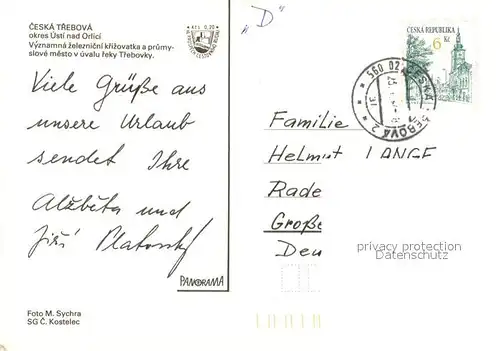 ČESKÁ TŘEBOVÁ
okres Ústí nad Orlicí
Významná železniční křižovatka a průmy-
slové město v úvalu řeky Třebovky.
"D"
ČESKÁ REPUBLIKA
6
Kč
560 02
ČESKÁ TŘEBOVÁ 2
Viele Grüße aus
unsere Urlaub
sendet Ihre
Alžběta und
Jiří Platovský
Familie
Helmut LANGE
Rade
Große
Deu
privacy protection
watermark
PANORAMA
Foto M. Sychra
SG Č. Kostelec